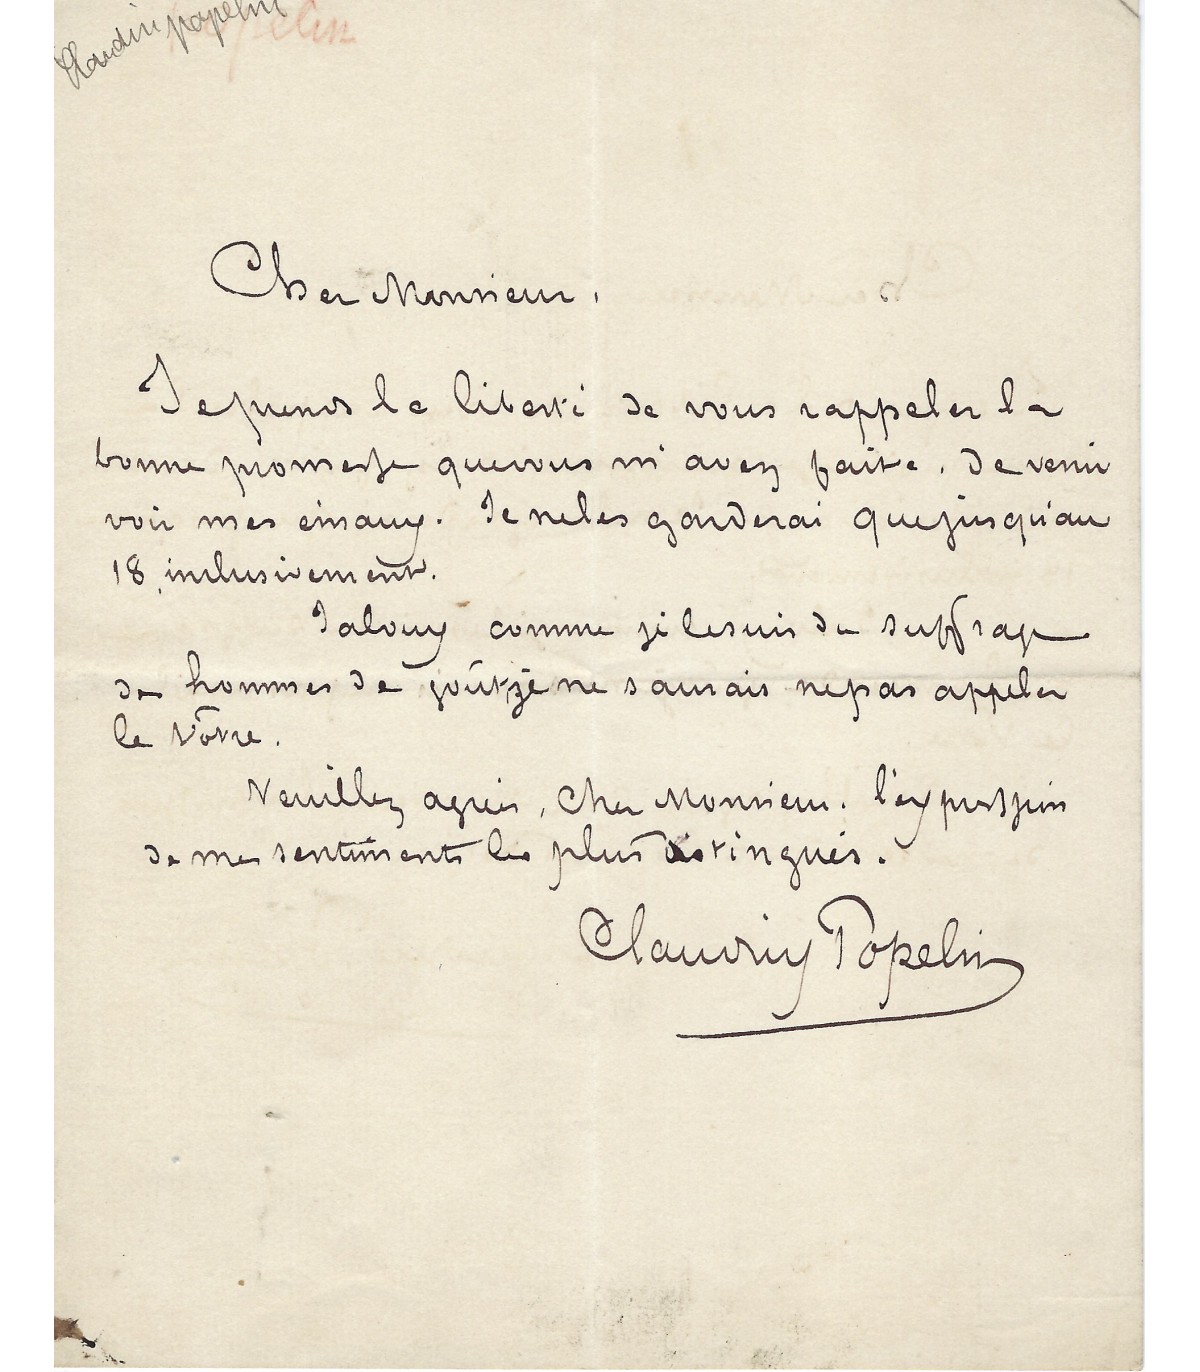 Claudin popelin
Popelin
Cher Monsieur,
Je prends la liberté de vous rappeler la
bonne promesse que vous m'avez faite, de venir
voir mes émaux. Je ne les garderai que jusqu'au
18, inclusivement.
Jaloux comme je le suis du suffrage
des hommes de goût, je ne saurais ne pas appeler
le vôtre.
Veuillez agréer, cher Monsieur, l'expression
de mes sentiments les plus distingués.
Claudius Popelin